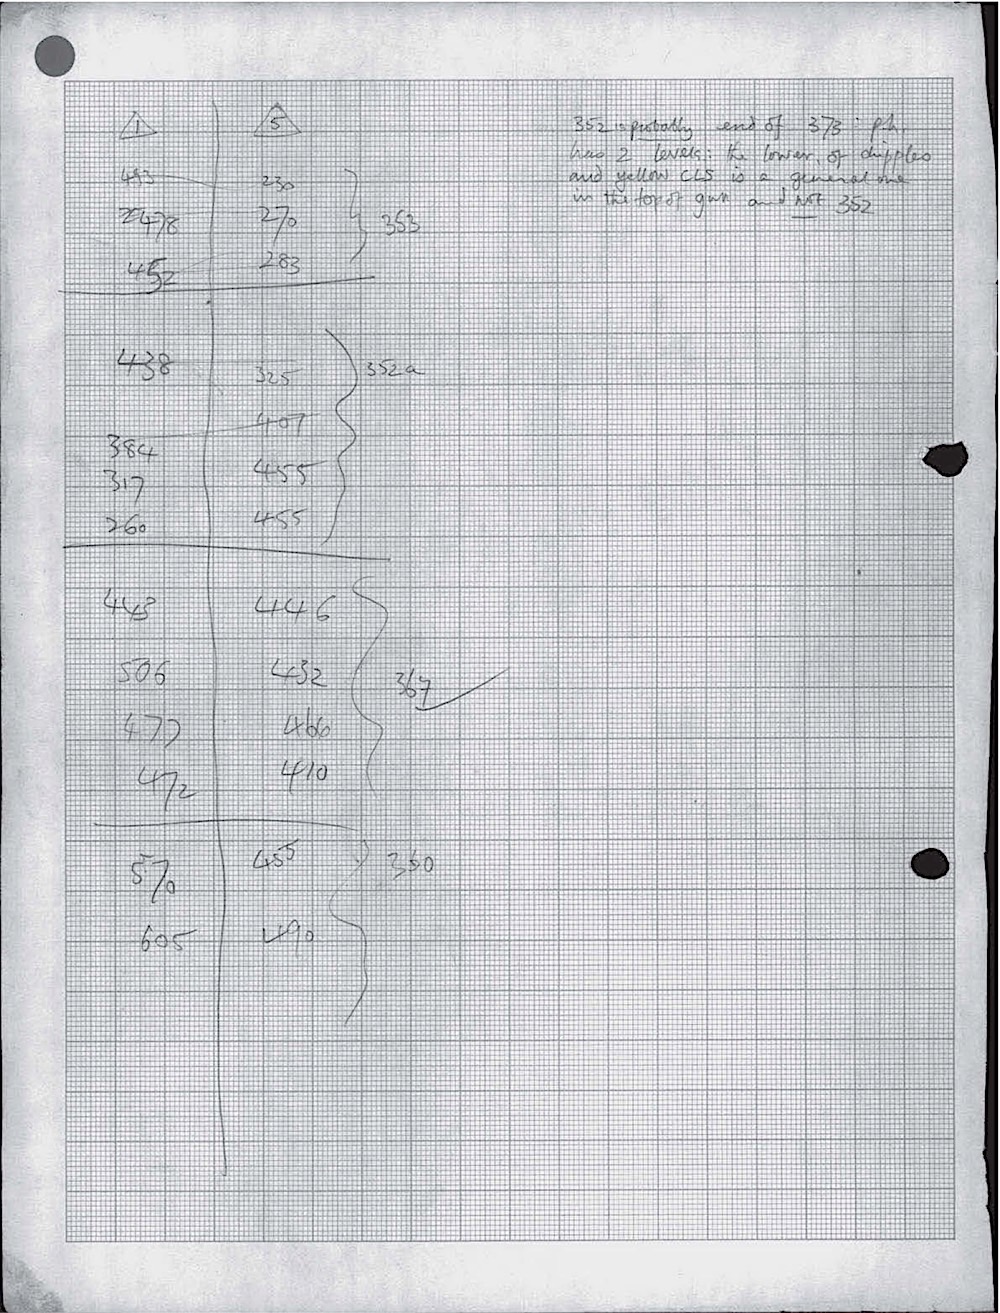 1 5
352 is probably end of 373: p.h.
has 2 levels: the lower, of dipples
and yellow CLS is a general one
in the top of gun and NOT 352
493 230
478 270 353
452 283
438 325 352a
407
384
317 455
260 455
443 446
506 432 367
477 466
472 410
570 455 360
605 490